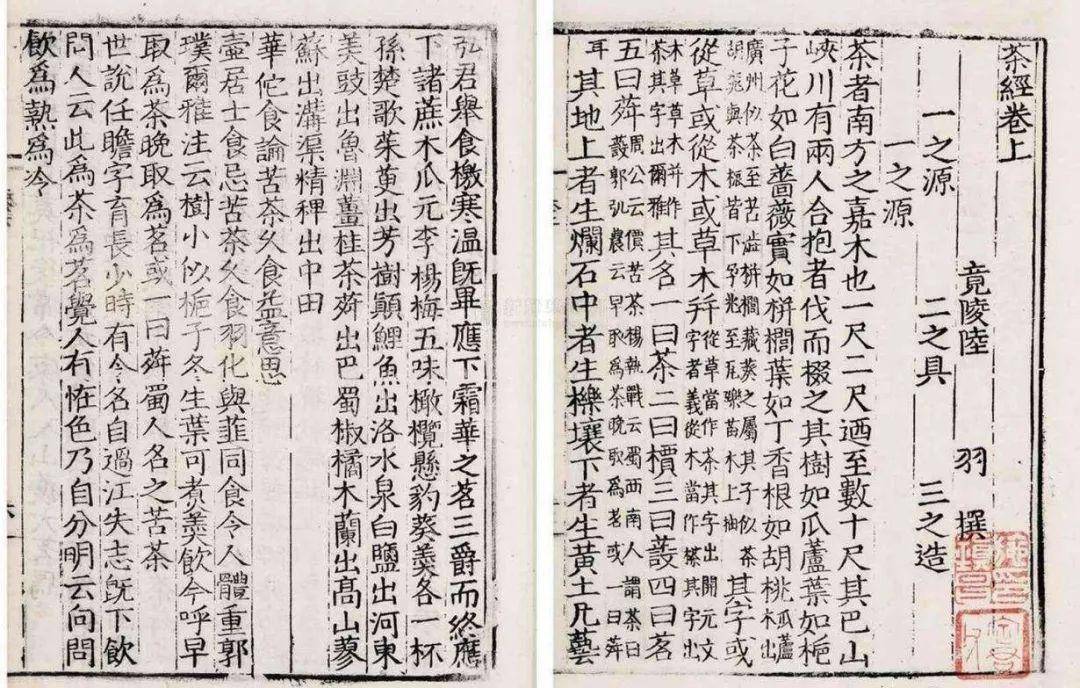 茶經卷上
竟陵陸　羽　撰
一之源　二之具　三之造
一之源
茶者南方之嘉木也一尺二尺迺至數十尺其巴山
峽川有兩人合抱者伐而掇之其樹如瓜蘆葉如梔
子花如白薔薇實如栟櫚葉如丁香根如胡桃瓜蘆木出
廣州似茶至苦澁栟櫚蒲葵之屬其子似茶胡桃與茶根皆下孕兆至瓦礫苗木上抽其字或
從草或從木或草木并從草當作茶其字出開元文字者義從木當作𣘻其字出
木草草木并作荼其字出爾雅其名一曰茶二曰檟三曰蔎四曰茗
五曰荈周公云檟苦茶楊執戟云蜀西南人謂茶曰蔎郭弘農云早取爲茶晚取爲茗或一曰荈
耳其地上者生爛石中者生櫟壤下者生黃土凡藝
弘君舉食檄寒温旣畢應下霜華之茗三爵而終應
下諸蔗木瓜元李楊梅五味橄欖懸豹葵羮各一杯
孫楚歌茱萸出芳樹顚鯉魚出洛水泉白鹽出河東
美豉出魯淵薑桂茶荈出巴蜀椒橘木蘭出高山蓼
蘇出溝渠精稗出中田
華佗食論苦茶久食益意思
壺居士食忌苦茶久食羽化與韮同食令人體重郭
璞爾雅注云樹小似梔子冬生葉可煮羮飲今呼早
取爲茶晚取爲茗或一曰荈蜀人名之苦茶
世說任瞻字育長少時有令名自過江失志旣下飲
問人云此爲茶爲茗覺人有恠色乃自分明云向問
飲爲熱爲冷